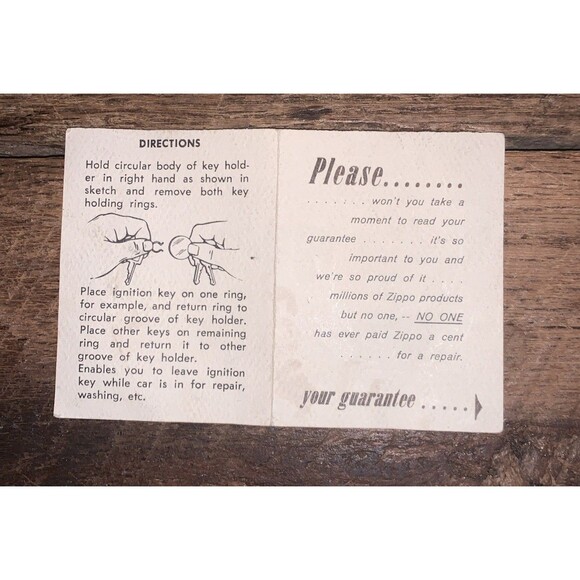 DIRECTIONS
Hold circular body of key hold-
er in right hand as shown in
sketch and remove both key
holding rings.
Place ignition key on one ring,
for example, and return ring to
circular groove of key holder.
Place other keys on remaining
ring and return it to other
groove of key holder.
Enables you to leave ignition
key while car is in for repair,
washing, etc.
Please........
. . . . . . . won't you take a
moment to read your
guarantee . . . . . . . it's so
important to you and
we're so proud of it . . . .
millions of Zippo products
but no one, -- NO ONE
has ever paid Zippo a cent
. . . . . . . for a repair.
your guarantee .....